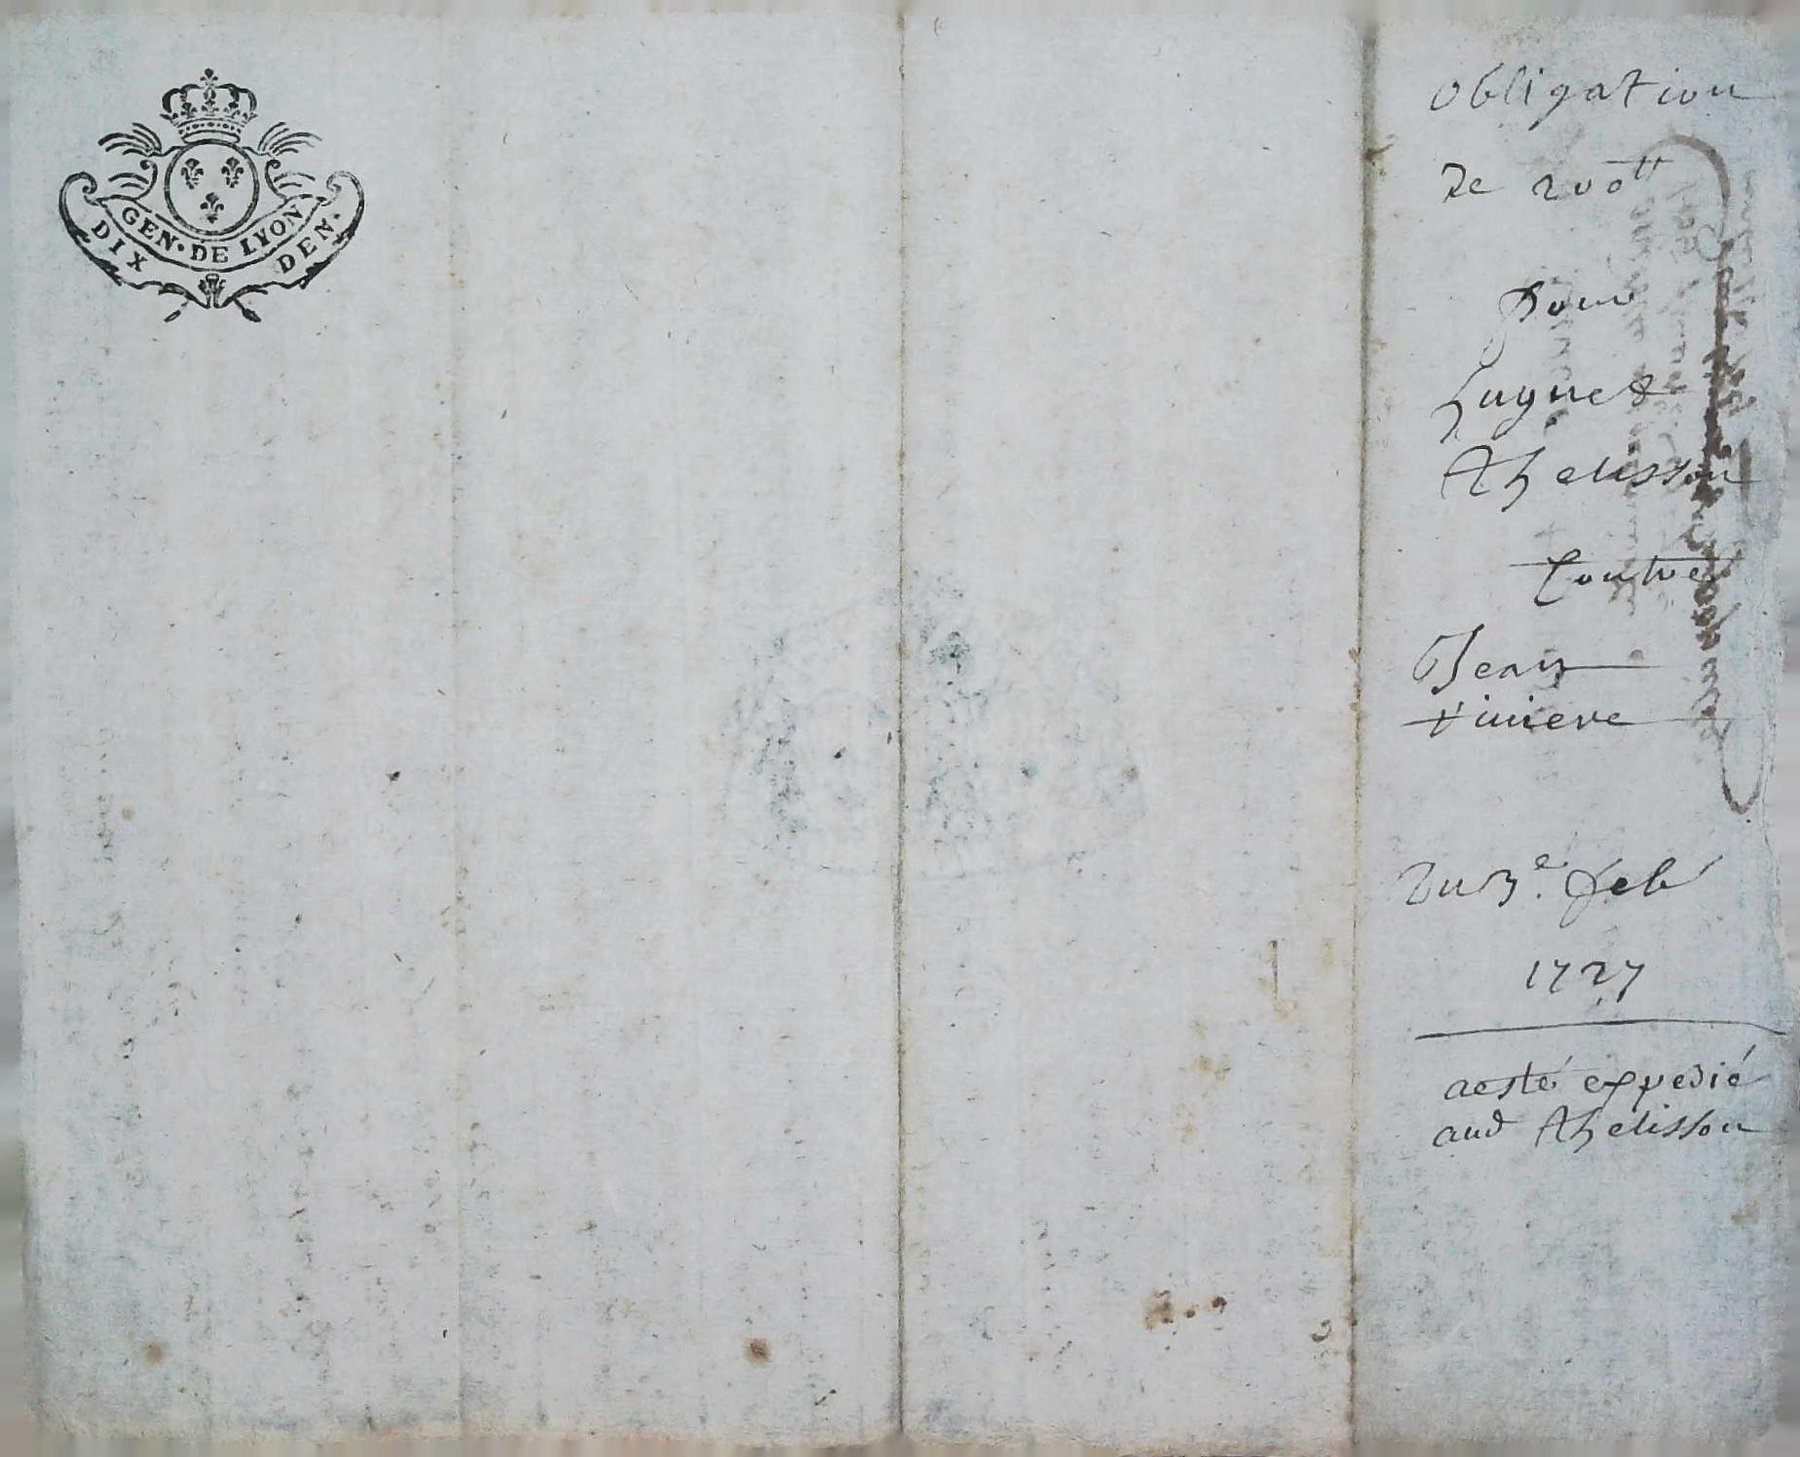 GEN · DE LYON
DIX DEN ·
obligation
de 200tt
pour
huguet
Thelisson
Contre
Jean
riuiere
du 3e. feb
1727
aesté expedié
aud Thelisson